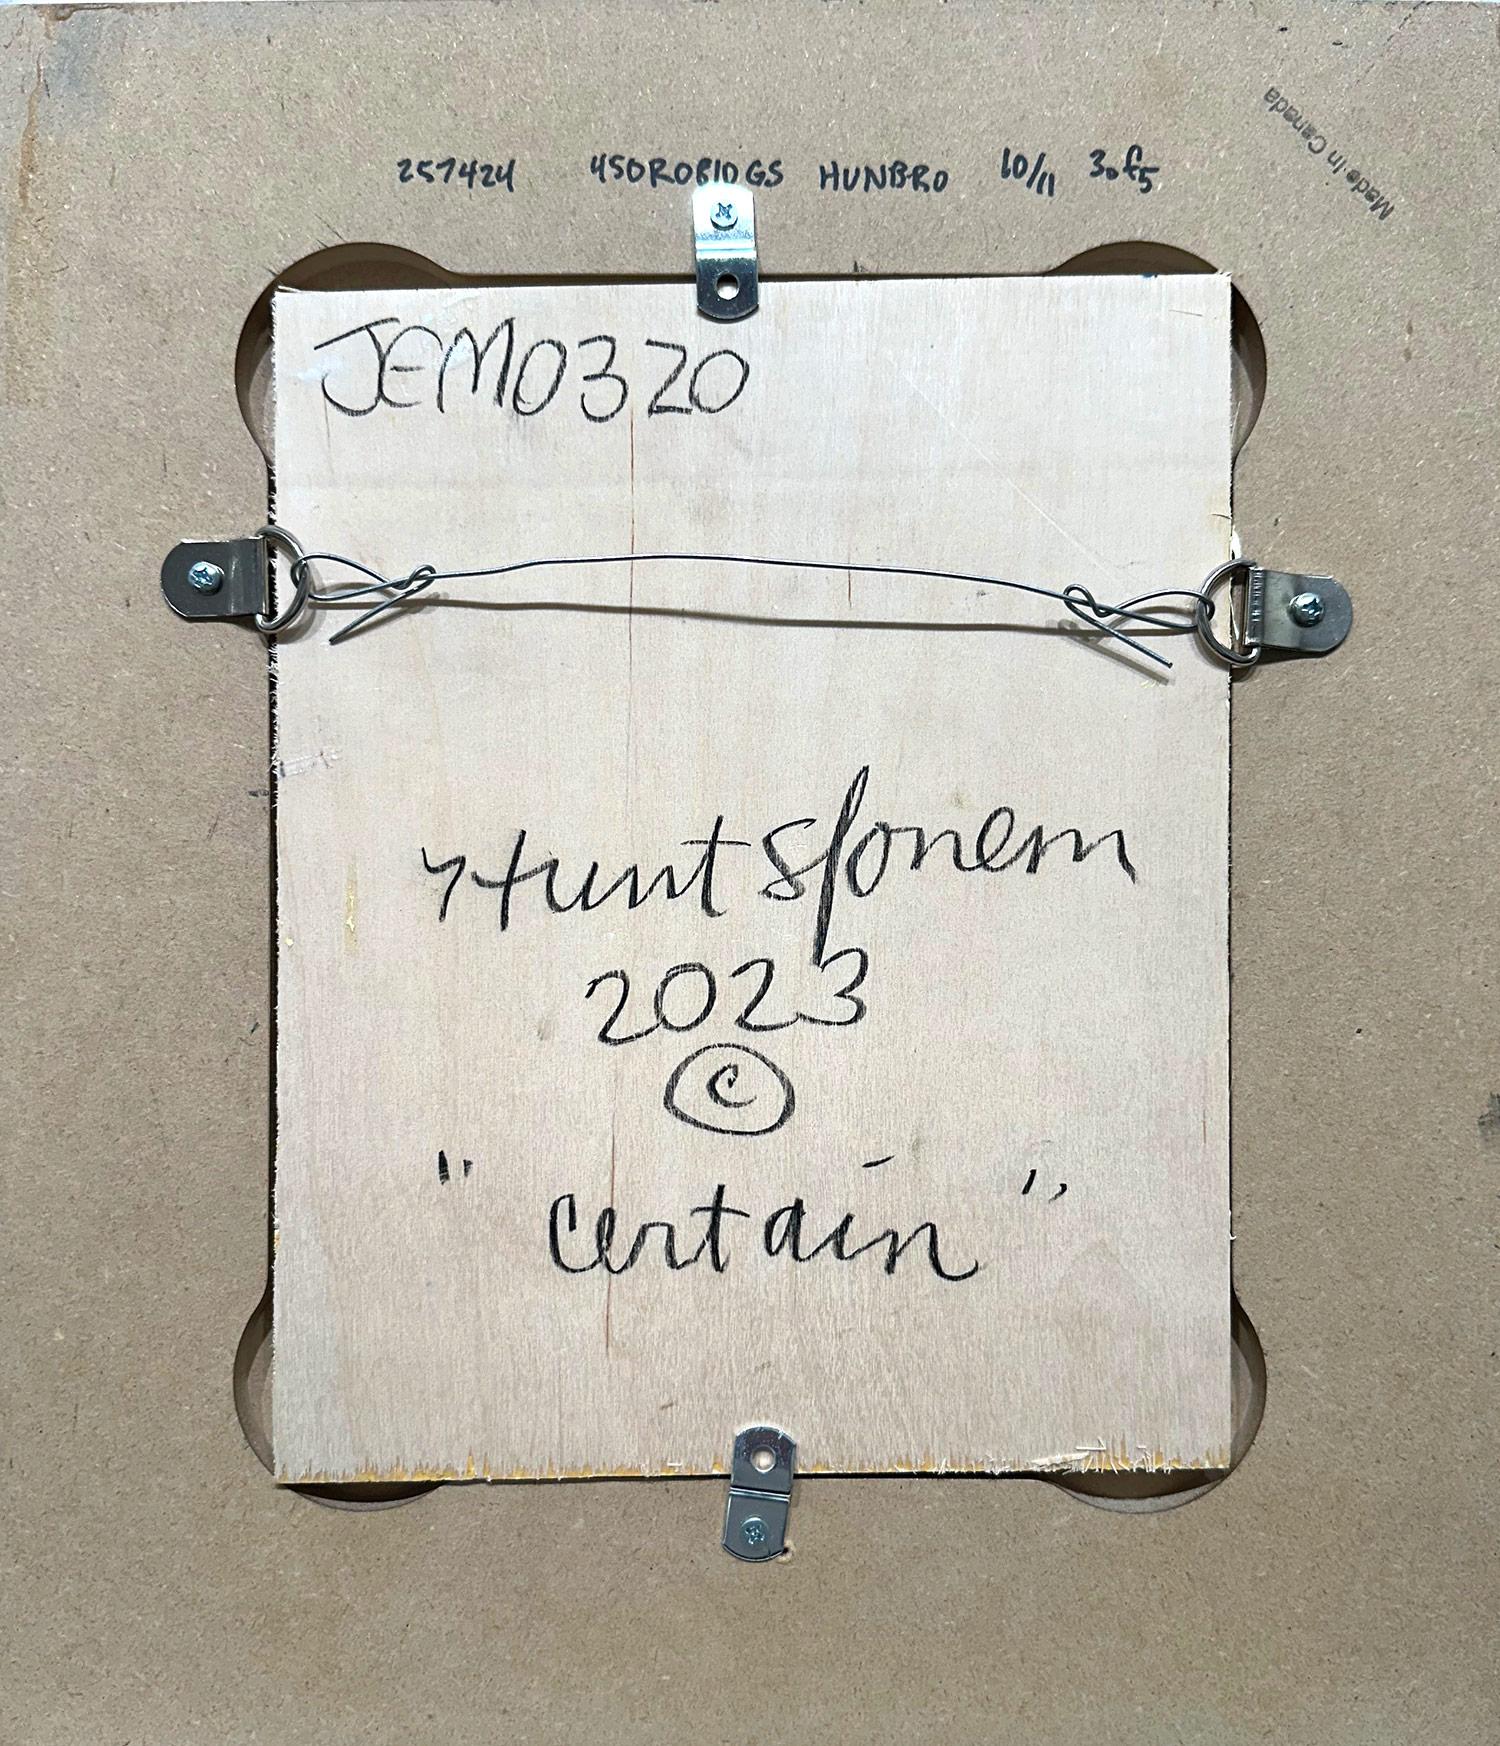 Made In Canada
257424 450R0810GS HUNBRO 10/11 3of5
JEM0320
Hunt Slonem
2023
©
"certain"